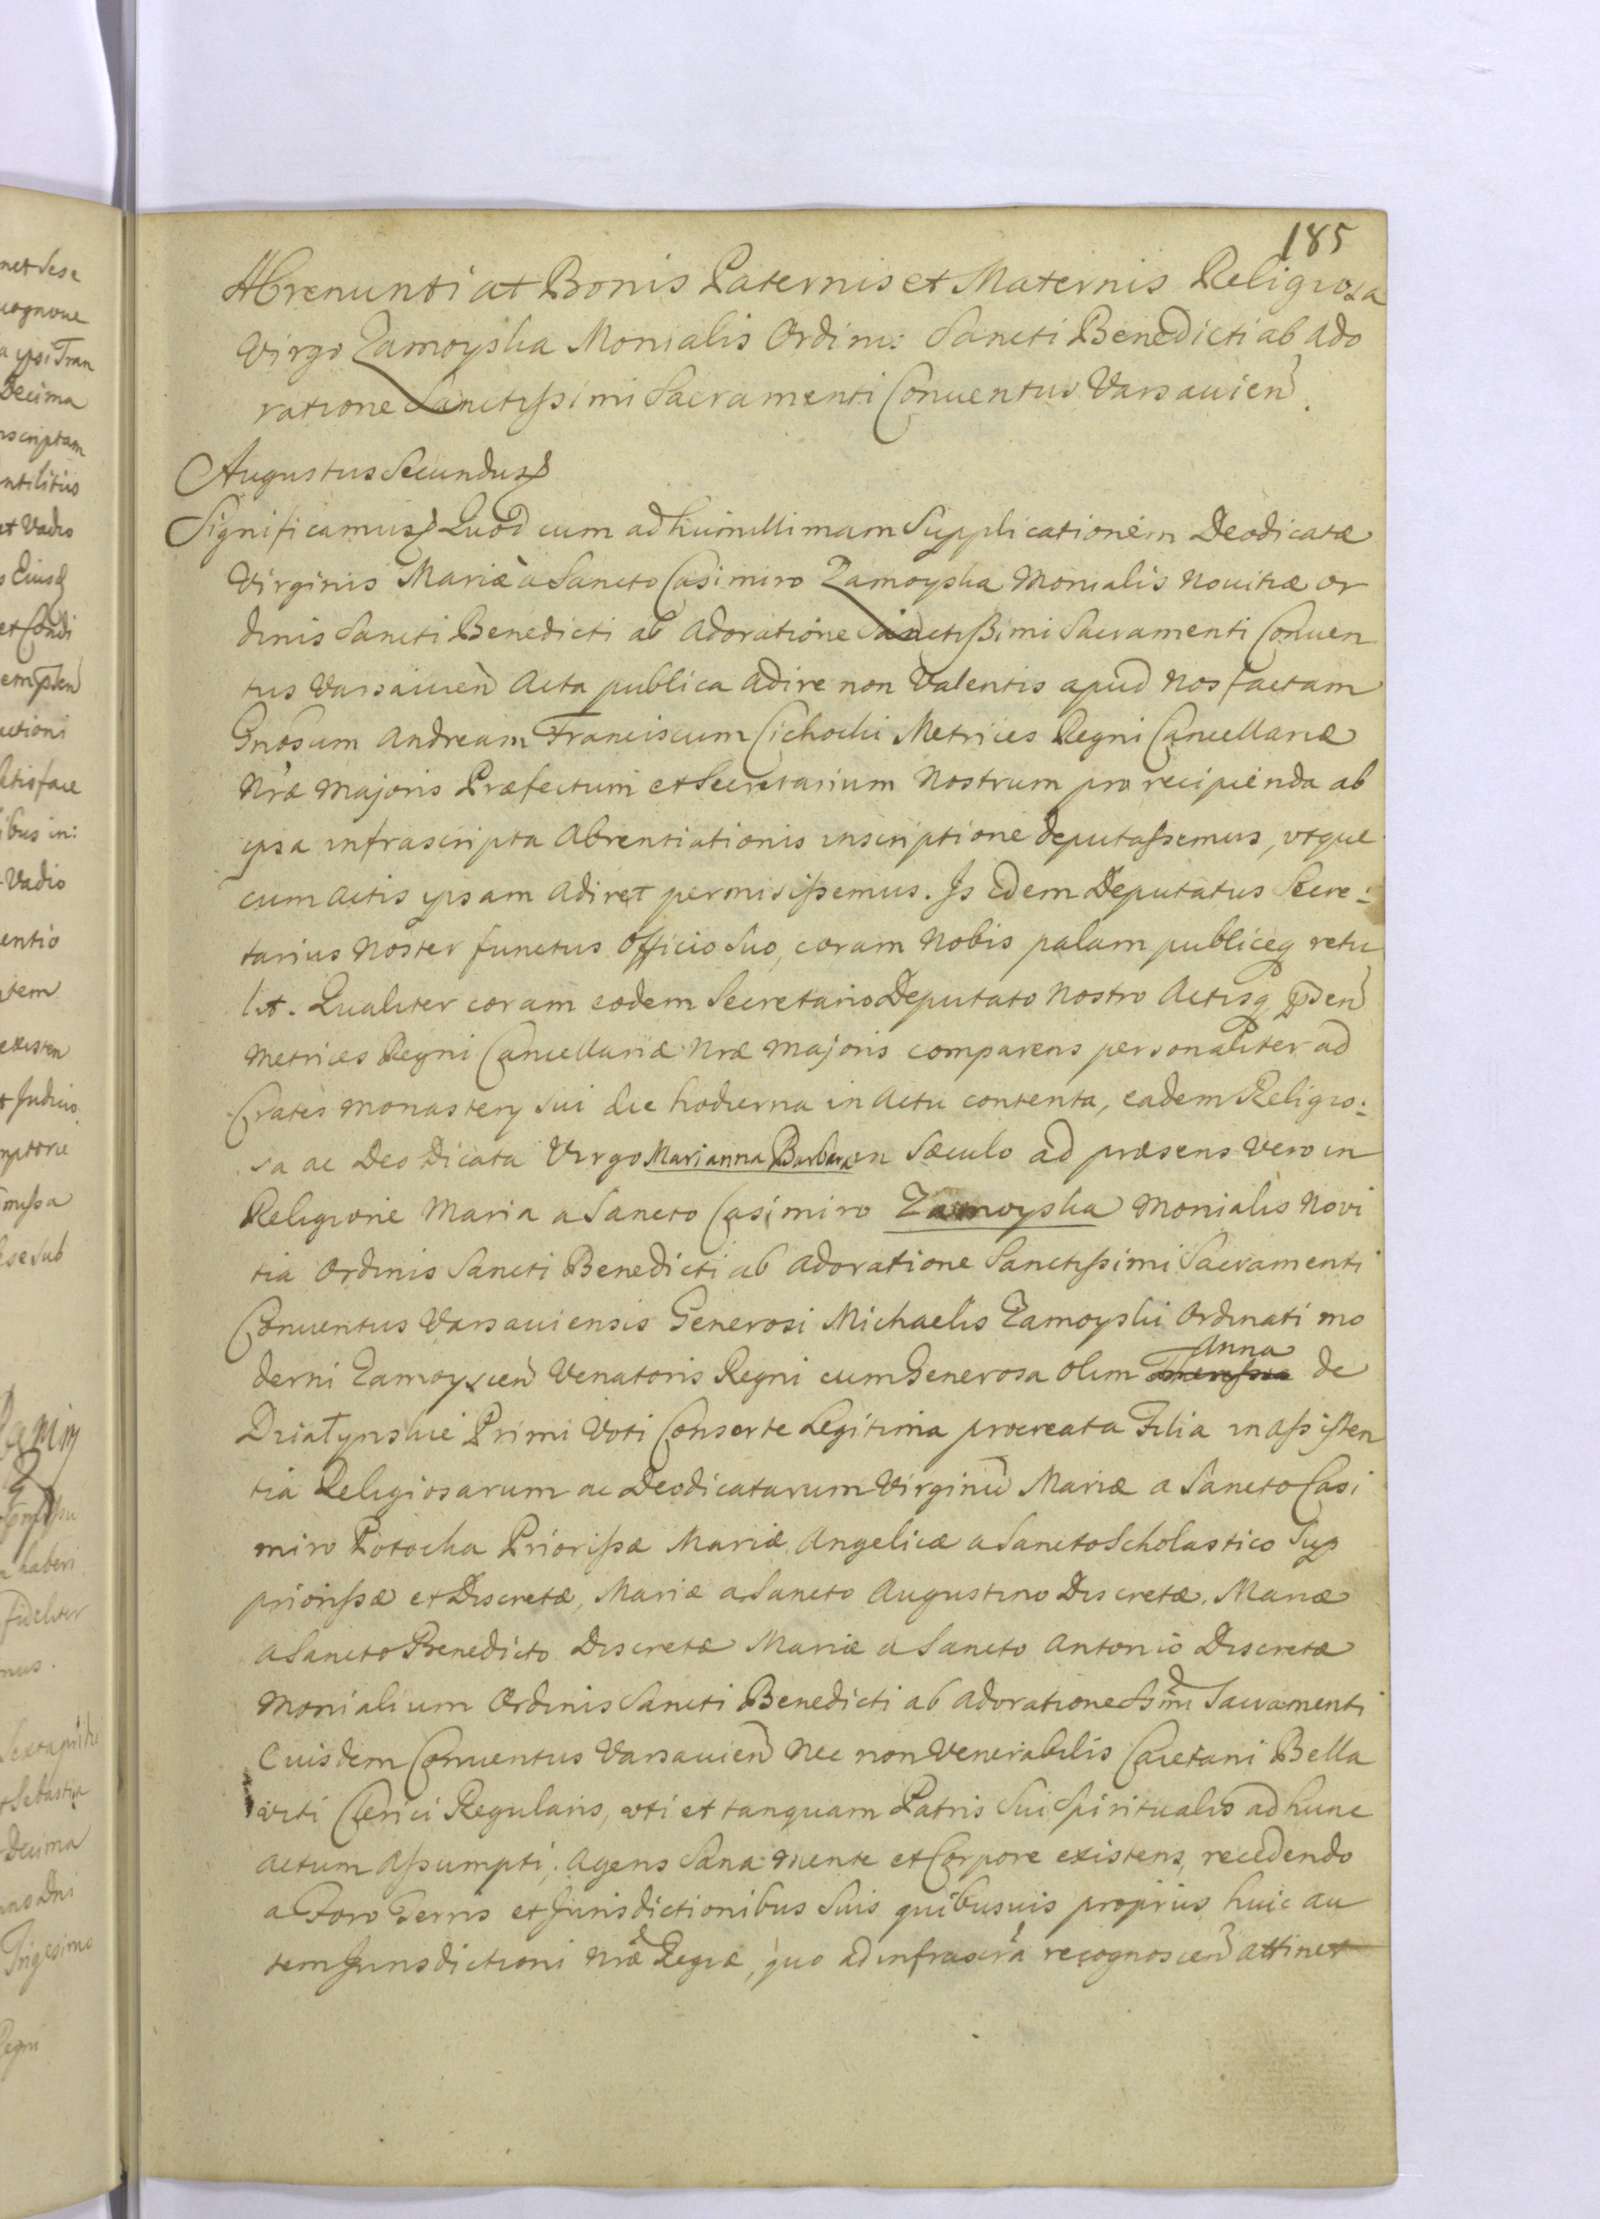 185
Abrenuntiat Bonis Paternis et Maternis Religiosa
Virgo Zamoyska Monialis Ordinis Sancti Benedicti ab Ado
ratione Sanctissimi Sacramenti Conventus Varsavien.
Augustus Secundus
Significamus Quod cum ad humillimam Supplicationem Deodicatæ
Virginis Mariæ a Sancto Casimiro Zamoyska Monialis Novitiæ or
dinis Sancti Benedicti ab Adoratione Sanctissimi Sacramenti Conven
tus Varsavien Acta publica Adire non Valentis apud Nos factam
Gnosum Andream Franciscum Cichocki Metrices Regni Cancellariæ
Nræ Majoris Præfectum et Secretarium Nostrum pro recipienda ab
ipsa infrascripta Abrentiationis inscriptione deputassemus, vtque
cum Actis ipsam Adiret permisissemus. Is Idem Deputatus Secre:
tarius Noster functus Officio Suo, coram Nobis palam publiceq retu
lit. Qualiter coram eodem Secretario Deputato Nostro Actisq pñsen
Metrices Regni Cancellariæ Nræ Majoris comparens personaliter ad
Crates Monastery sui die hodierna in Actu contenta, eadem Religio:
sa ac Deo Dicata Virgo Marianna Barbara in Sæculo ad præsens vero in
Religione Maria a Sancto Casimiro Zamoyska Monialis Novi
tia Ordinis Sancti Benedicti ab Adoratione Sanctissimi Sacramenti
Conventus Varsaviensis Generosi Michaelis Zamoyski Ordinati mo
derni Zamoyscien Venatoris Regni cum Generosa Olim Anna de
Działynskie Primi Voti Consorte Legitima procreata Filia in Assisten
tia Religiosarum ac Deodicatarum Virginũ Mariæ a Sancto Casi
miro Potocka Priorissæ Mariæ Angelicæ a Sancto Scholastico Sup
priorissæ et Discretæ, Mariæ a Sancto Augustino Discretæ. Mariæ
a Sancto Benedicto Discretæ Mariæ a Sancto Antonio Discretæ
Monialium Ordinis Sancti Benedicti ab Adoratione Ssimi Sacramenti
Eiusdem Conventus Varsavien Nec non Venerabilis Caietani Bella
viti Clerici Regularis, vti et tanquam Patris Sui Spiritualis ad hunc
Actum Assumpti, Agens Sana mente et Corpore existens, recedendo
a Foro Terris et Jurisdictionibus Suis quibusvis proprius huic au
tem Jurisdictioni Nræ Regiæ, quo ad infrascra recognoscen attinet